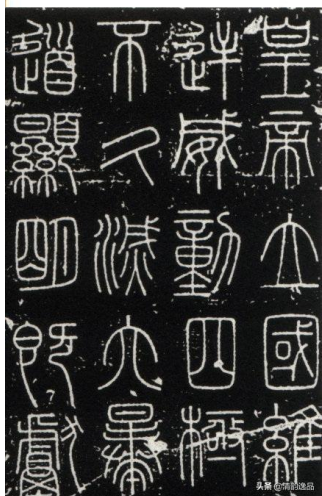 皇帝立國維
逆威動四極
不久滅六暴
道顯明既獻
头条 @情韵逸品